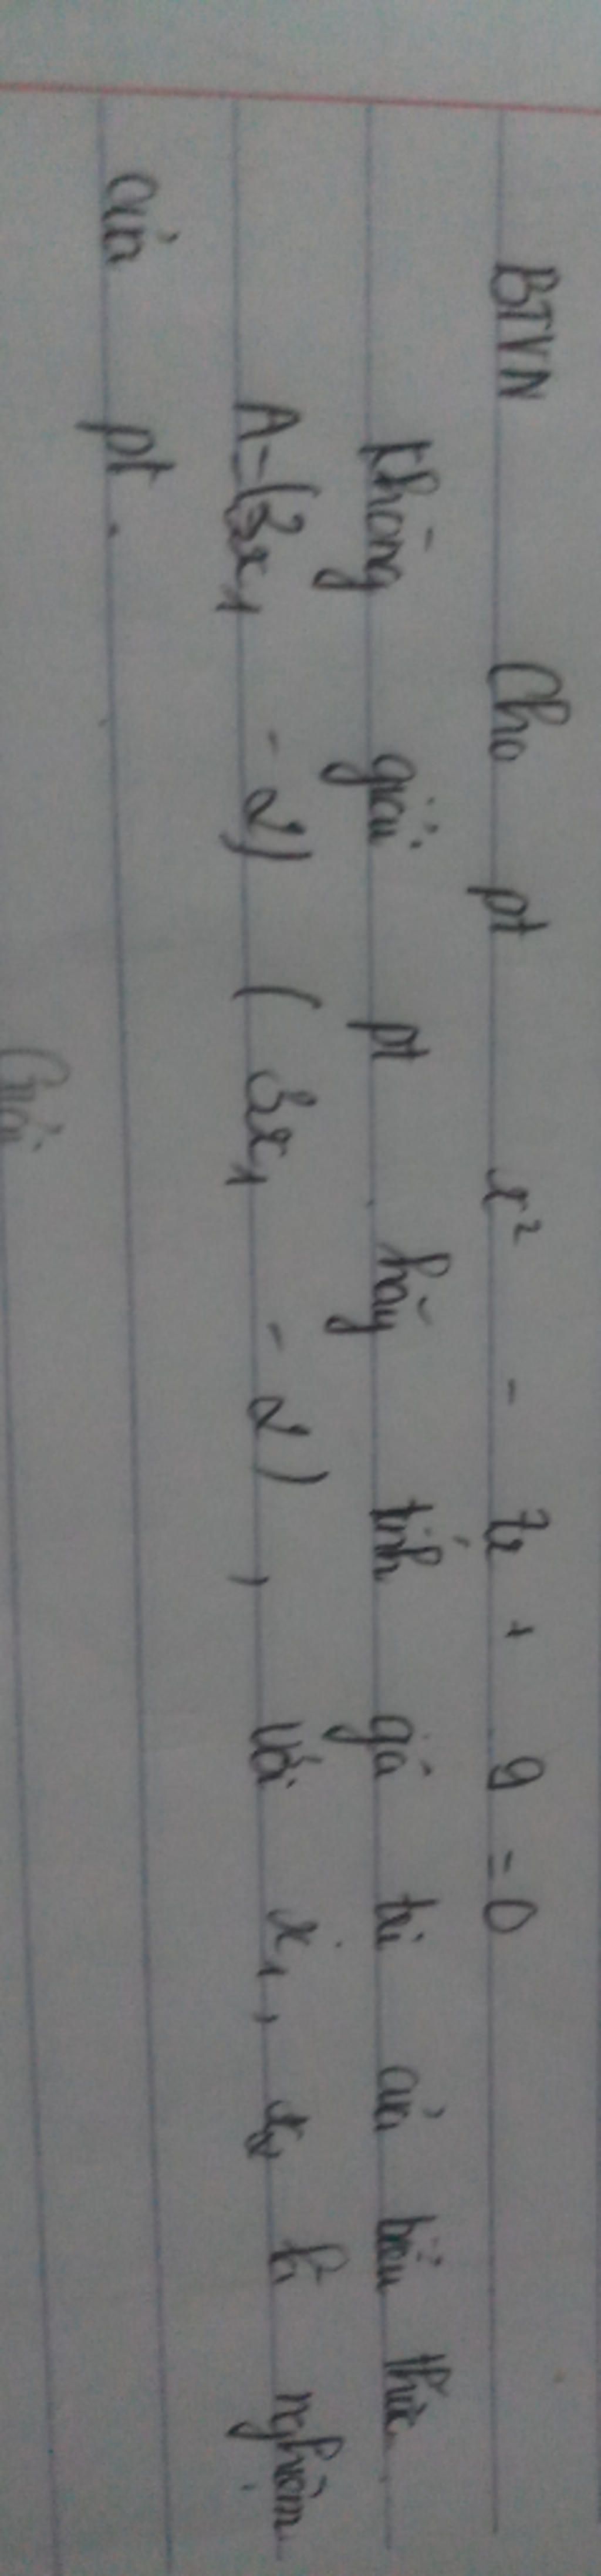 BTVN Cho pt x² - 7x + 9 = 0
Không giải pt hãy tính giá trị của biểu thức
A = (3x₁ - 2) (3x₁ - 2), với x₁, x₂ là nghiệm
của pt.
Giải